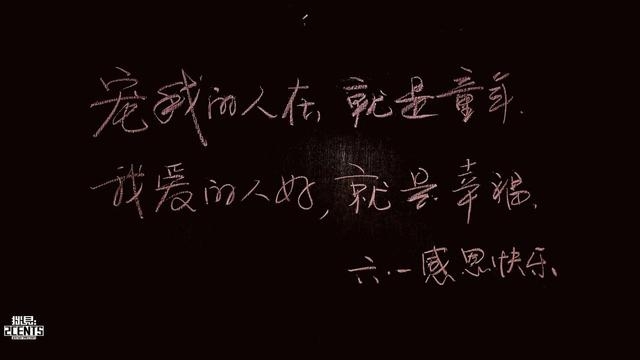 宠我的人在,就是童年.
我爱的人好,就是幸福.
六.一感恩快乐
2CENTS